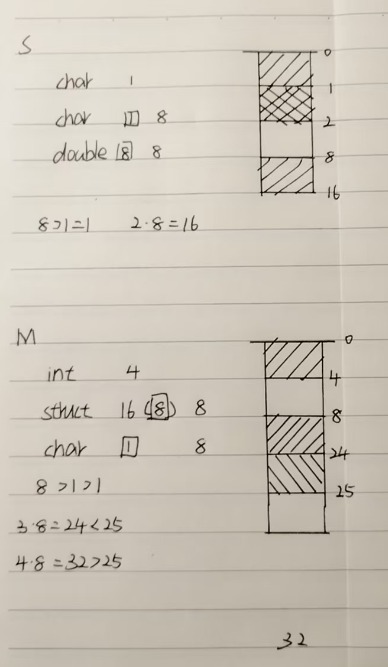 S
0
char 1
1
char 1 8
2
double 8 8
8
16
8>1=1 2·8=16
M
0
int 4
4
struct 16 (8) 8
8
char 1 8
24
8>1>1
25
3·8=24<25
4·8=32>25
32